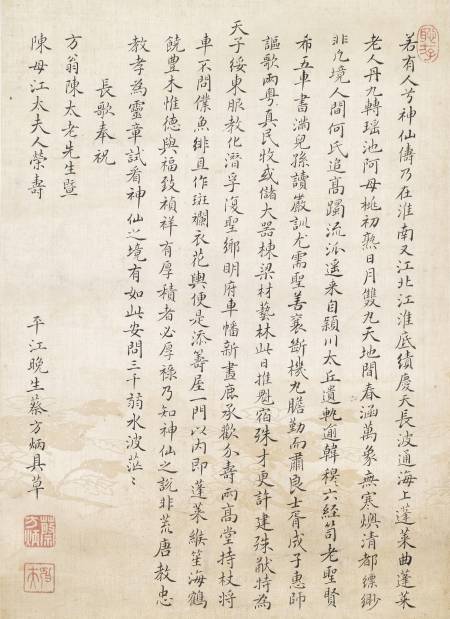 若有人兮神仙儔乃在淮南又江北江淮底績慶天長波通海上蓬萊曲蓬萊
老人丹九轉瑶池阿母桃初熟日月雙九天地間春涵萬象無寒燠清都縹緲
非凡境人間何氏追高躅流派遥来自潁川太丘遺軌逾韓穆六經笥老聖賢
希五車書滿兒孫讀嚴訓尤需聖善襄斷機九膽勤而肅良士胥成子惠師
謳歌兩粵真民牧或儲大器棟梁材藝林此日推魁宿殊才更許建殊猷特為
天子綏東服教化潛孚復聖鄉明府車幡新畫鹿承歡介壽兩高堂持杖將
車不問僕魚緋且作斑斕衣花輿便是添籌屋一門以内即蓬萊緱笙海鶴
饒豊未惟德與福致禎祥有厚積者必厚祿乃知神仙之說非荒唐教忠
教孝為靈章試看神仙之境有如此安問三千弱水波茫〻
長歌奉祝
方翁陳太老先生暨
陳母江太夫人榮壽
平江晚生蔡方炳具草
蔡方炳